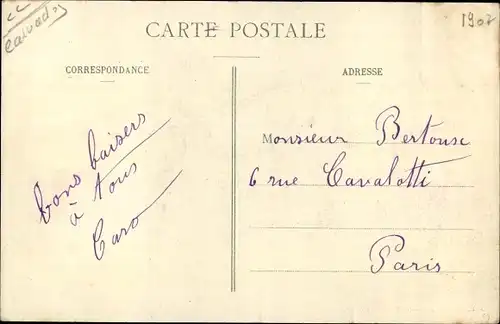 cc
calvados
1907
CARTE POSTALE
CORRESPONDANCE
bons baisers
à tous
Caro
ADRESSE
Monsieur Bertouse
6 rue Cavalotti
Paris